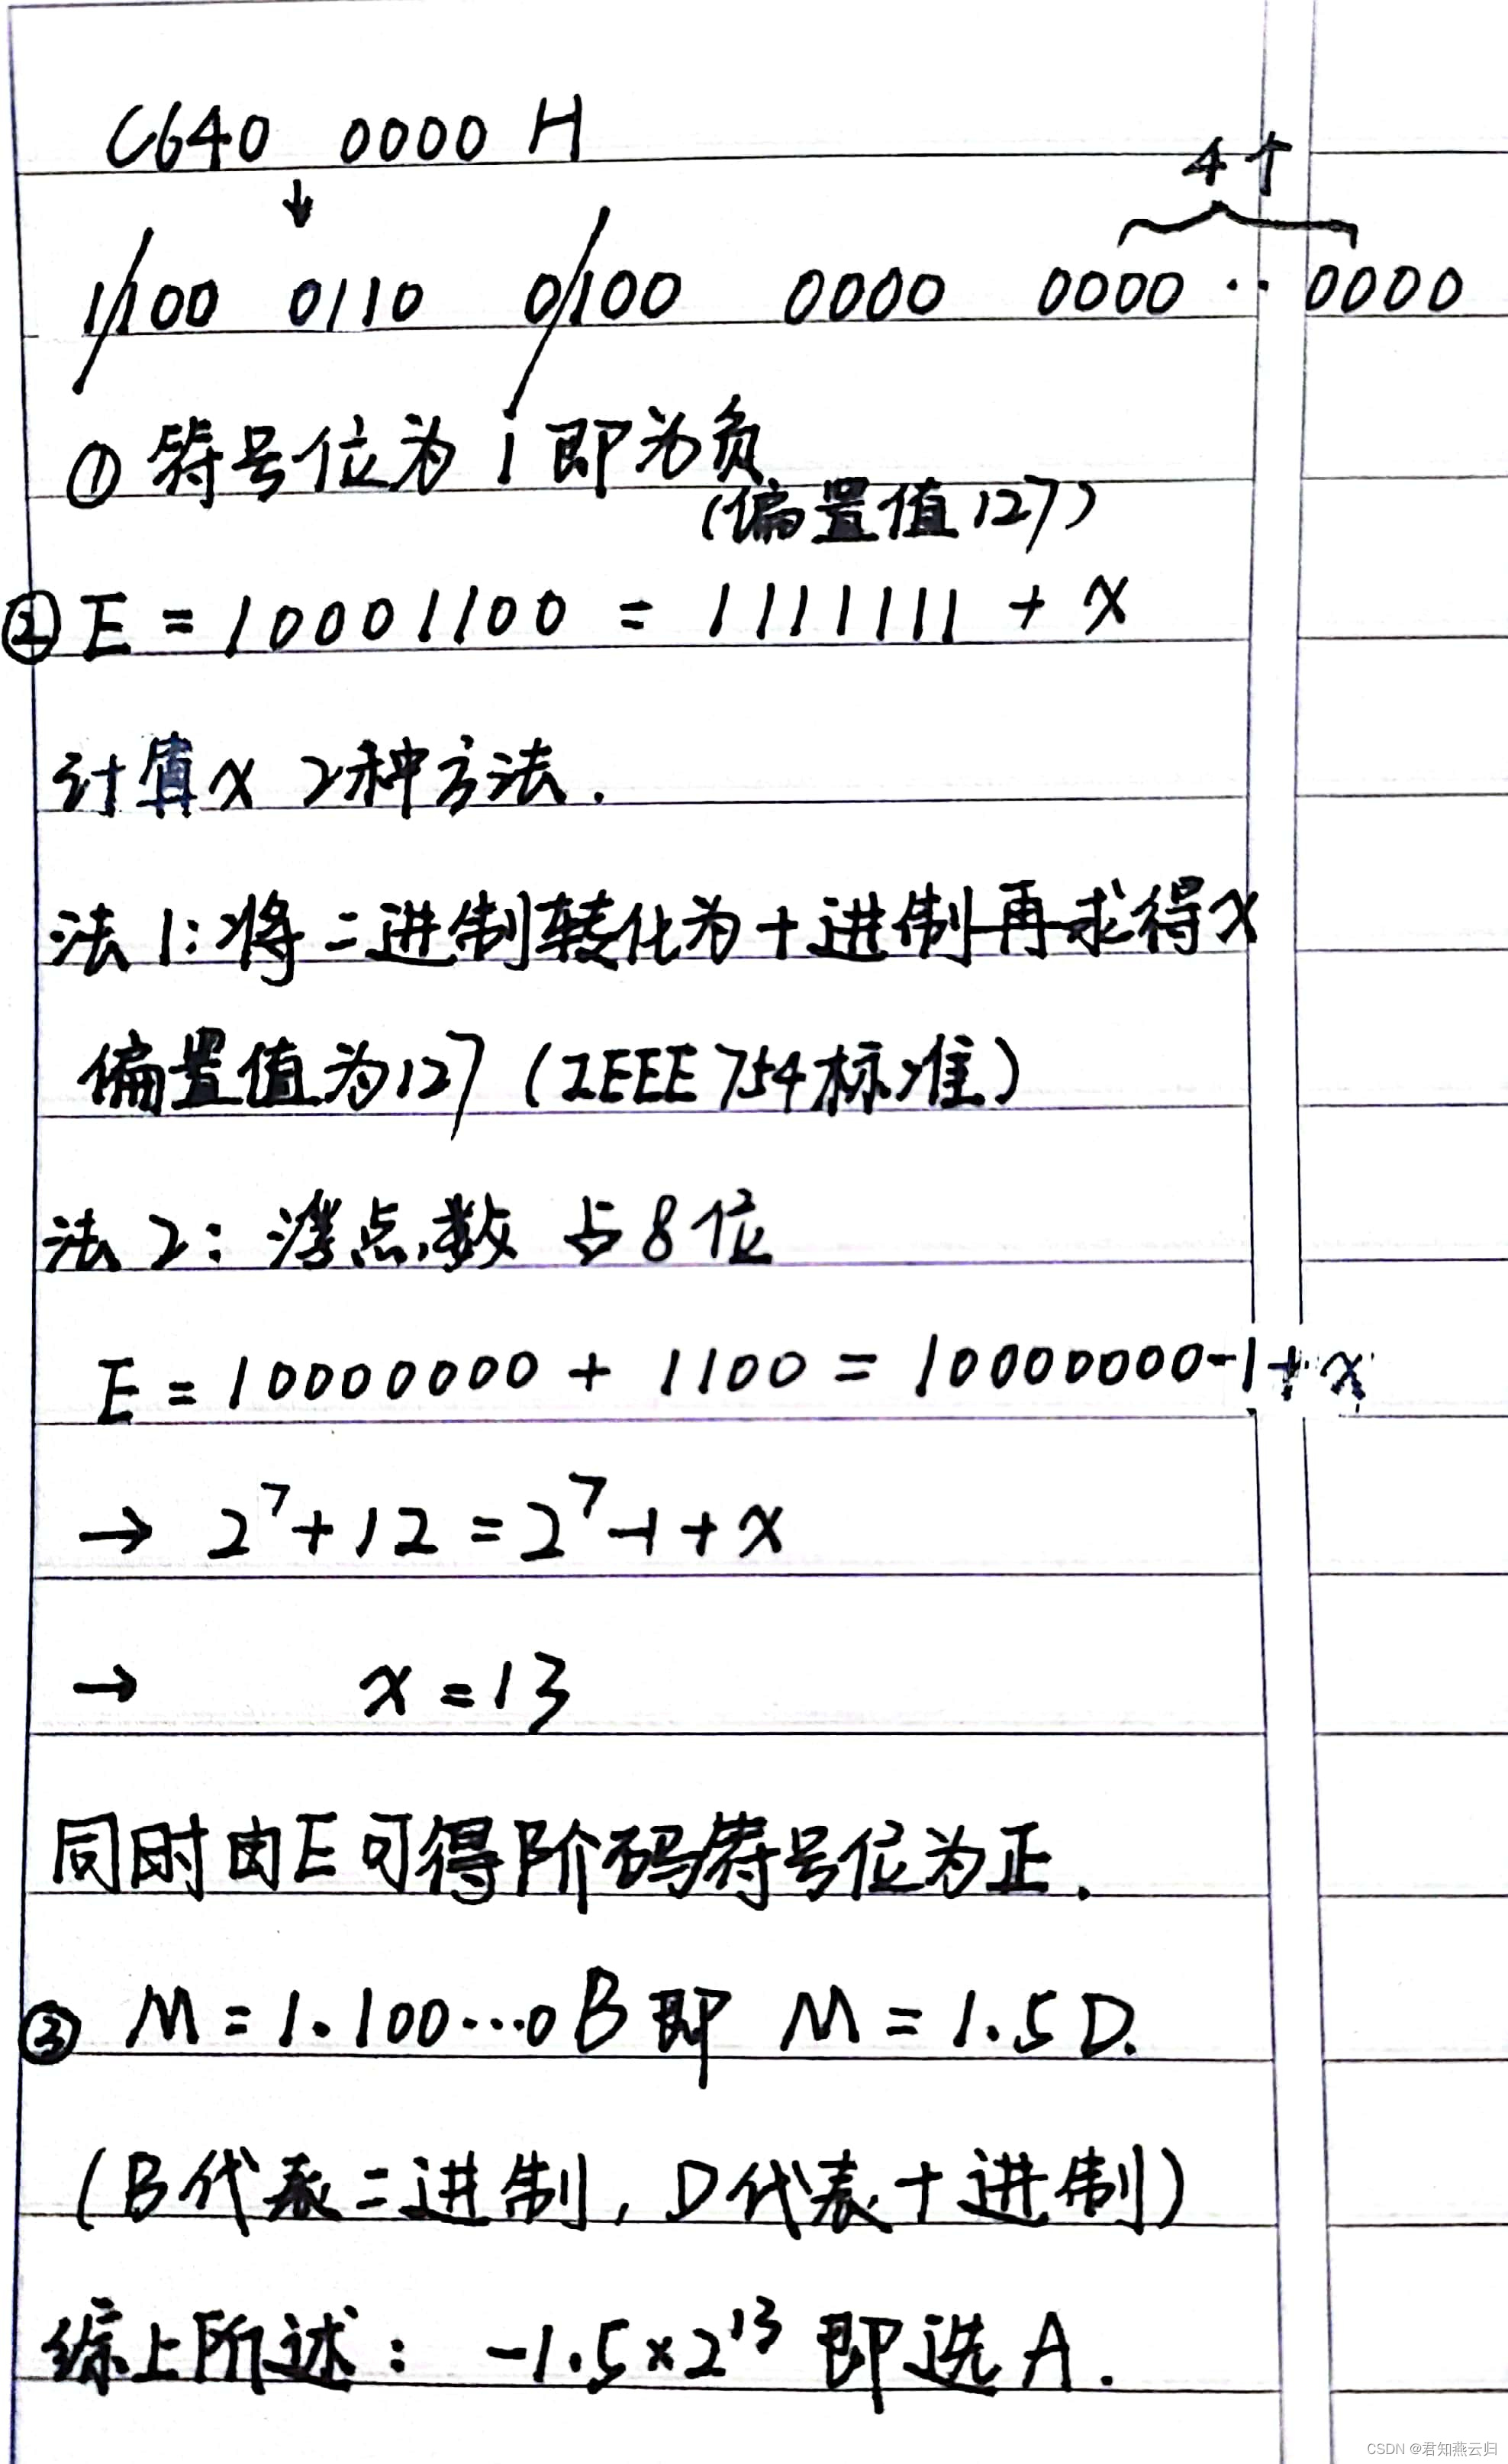 C640 0000 H
↓
4个
1/100 0110 0/100 0000 0000 ·· 0000
① 符号位为1即为负
(偏置值127)
② E = 10001100 = 1111111 + x
计算x 2种方法.
法1:将二进制转化为十进制再求得x
偏置值为127 (IEEE754标准)
法2: 浮点数 占8位
E = 10000000 + 1100 = 10000000-1+x
→ 2⁷+12=2⁷-1+x
→ x=13
同时由E可得阶码符号位为正.
③ M=1.100···0B即 M=1.5D.
(B代表二进制, D代表十进制)
综上所述: -1.5×2¹³ 即选A.
CSDN @君知燕云归